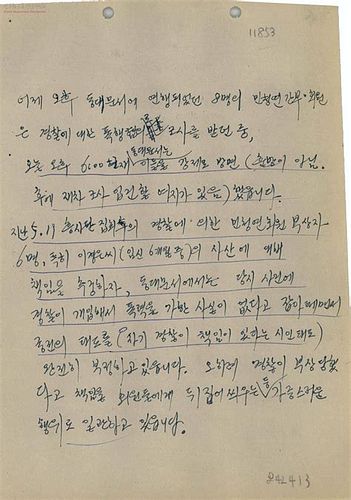 11853
어제 오후 동대문서에 연행되었던 8명의 민청련 간부·회원
은 경찰에 대한 폭행 조사를 받던 중,
동대문서는
오늘 오후 6:00 현재 이들을 강제로 방면 (훈방이 아님.
후에 재차 조사 입건할 여지가 있음) 했습니다.
지난 5.19 흥사단 집회후의 경찰에 의한 민청련회원 부상자
6명, 특히 이경은씨(임신 6개월 중)의 사산에 대해
책임을 추궁하자, 동대문서에서는 당시 사건에
경찰이 개입해서 폭력을 가한 사실이 없다고 잡아떼면서
종전의 태도를 (자기 경찰이 책임이 있다는 시인태도)
완전히 부정하고 있습니다. 오히려 경찰이 부상당했
다고 책임을 회원들에게 뒤집어 씌우는 등 가증스러운
행위로 일관하고 있습니다.